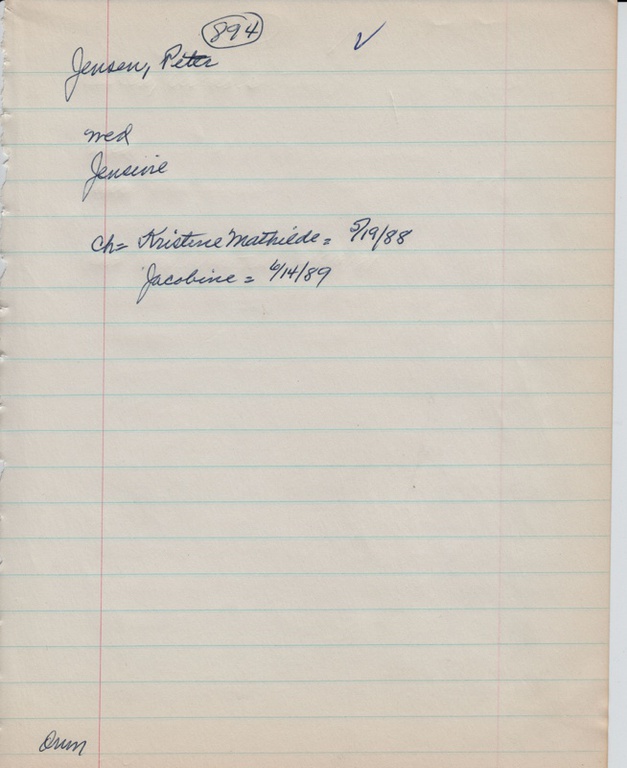 894 ✓
Jensen, Peter
med
Jensine
Ch= Kristine Mathilde = 5/19/88
Jacobine = 6/14/89